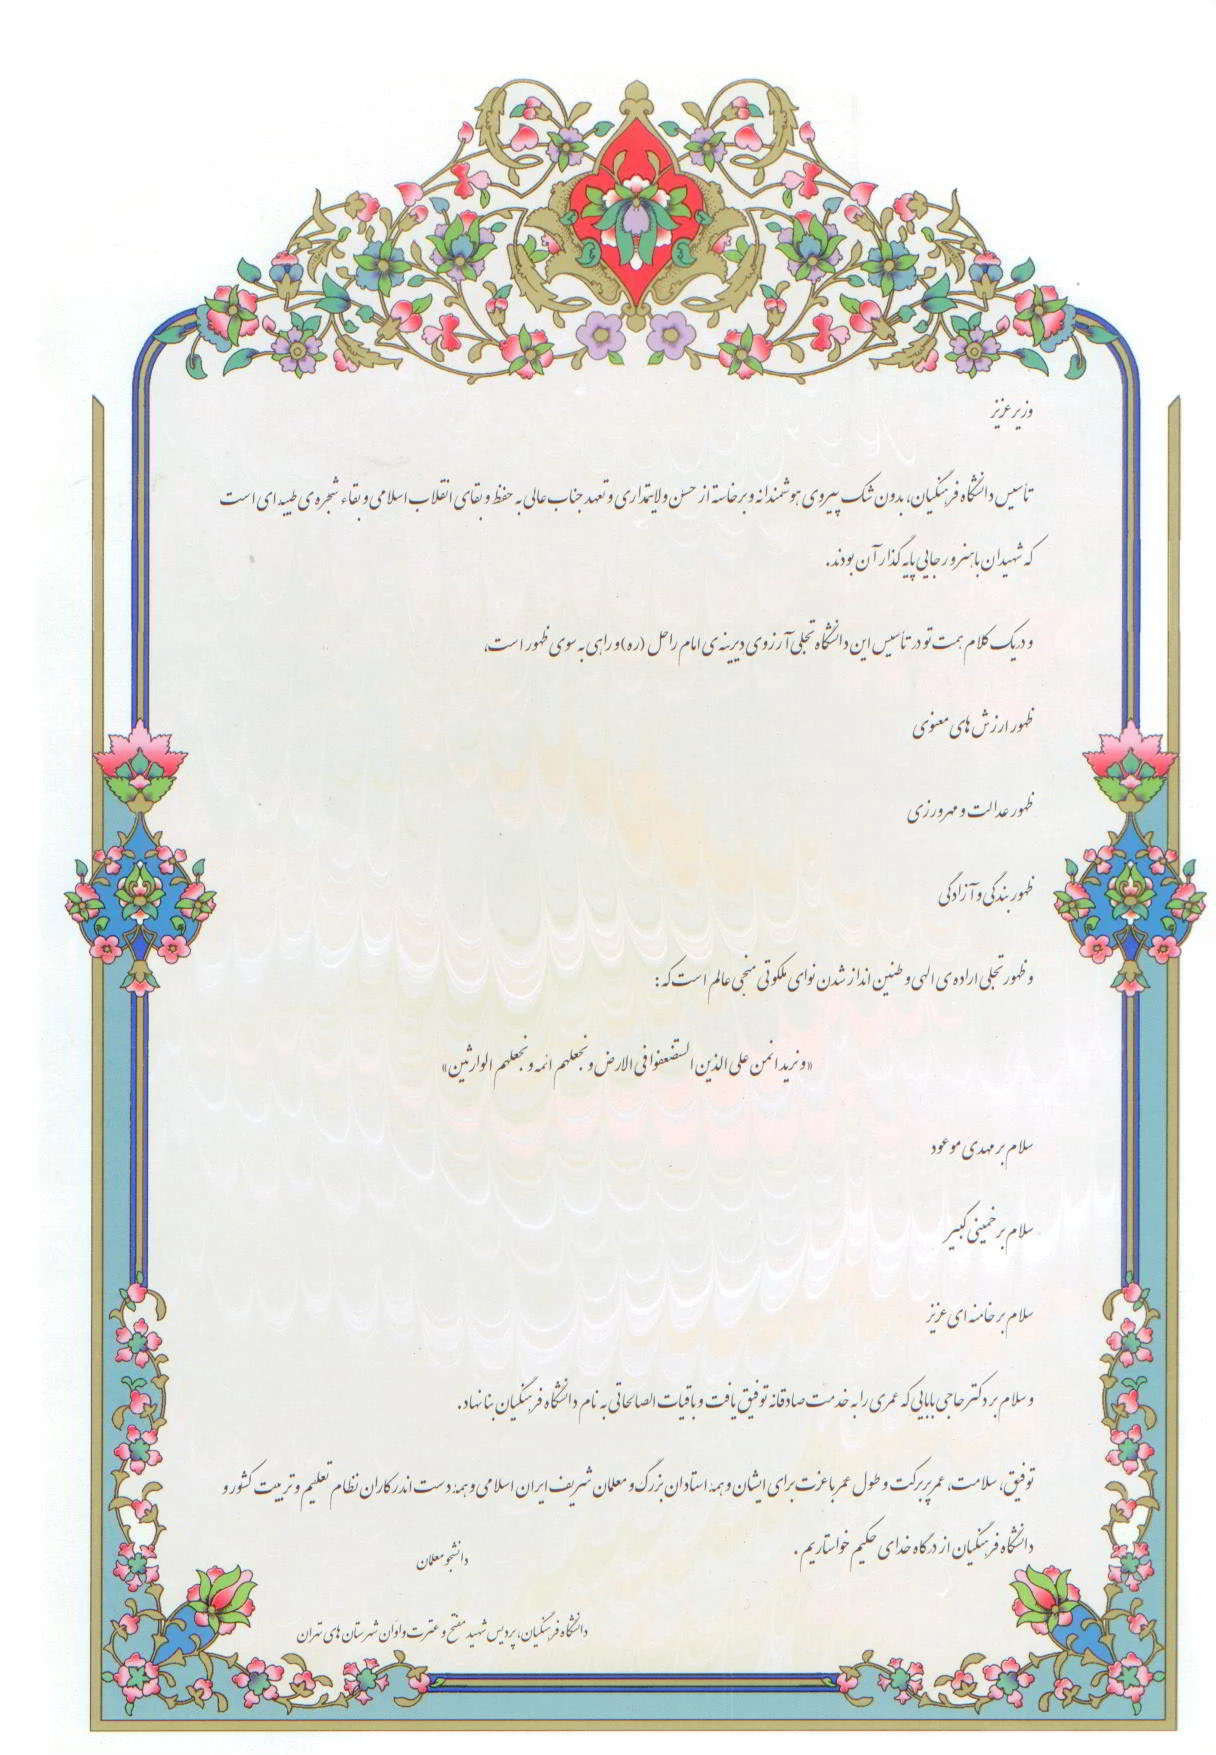 وزیر عزیز
تأسیس دانشگاه فرهنگیان، بدون شک پیروی هوشمندانه و برخاسته از حسن ولایتمداری و تعهد جناب عالی به حفظ و بقای انقلاب اسلامی و بقاء شجره ی طیبه ای است
که شهیدان باهنر و رجایی پایه گذار آن بودند.
و در یک کلام همت تو در تأسیس این دانشگاه تجلی آرزوی دیرینه ی امام راحل (ره) و راهی به سوی ظهور است،
ظهور ارزش های معنوی
ظهور عدالت و مهرورزی
ظهور بندگی و آزادگی
و ظهور تجلی اراده ی الهی و طنین انداز شدن نوای ملکوتی منجی عالم است که :
«و نرید انمن علی الذین الستضعفوا فی الارض و نجعلهم ائمه و نجعلهم الوارثین»
سلام بر مهدی موعود
سلام بر خمینی کبیر
سلام بر خامنه ای عزیز
و سلام بر دکتر حاجی بابایی که عمری را به خدمت صادقانه توفیق یافت و باقیات الصالحاتی به نام دانشگاه فرهنگیان بنا نهاد.
توفیق، سلامت، عمر پربرکت و طول عمر باعزت برای ایشان و همه استادان بزرگ و معلمان شریف ایران اسلامی و همه دست اندرکاران نظام تعلیم و تربیت کشور و
دانشگاه فرهنگیان از درگاه خدای حکیم خواستاریم .
دانشجو معلمان
دانشگاه فرهنگیان، پردیس شهید مفتح و عترت واوان شهرستان های تهران